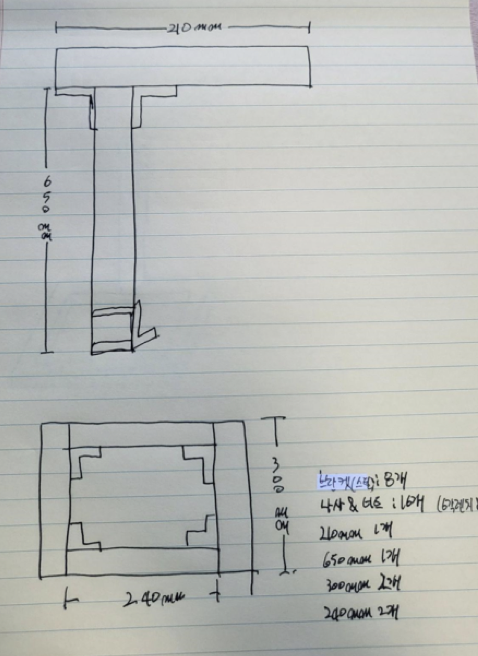 210mm
650mm
300mm
240mm
브라켓(소형): 8개
나사 & 너트 : 16개
210mm 1개
650mm 1개
300mm 2개
240mm 2개